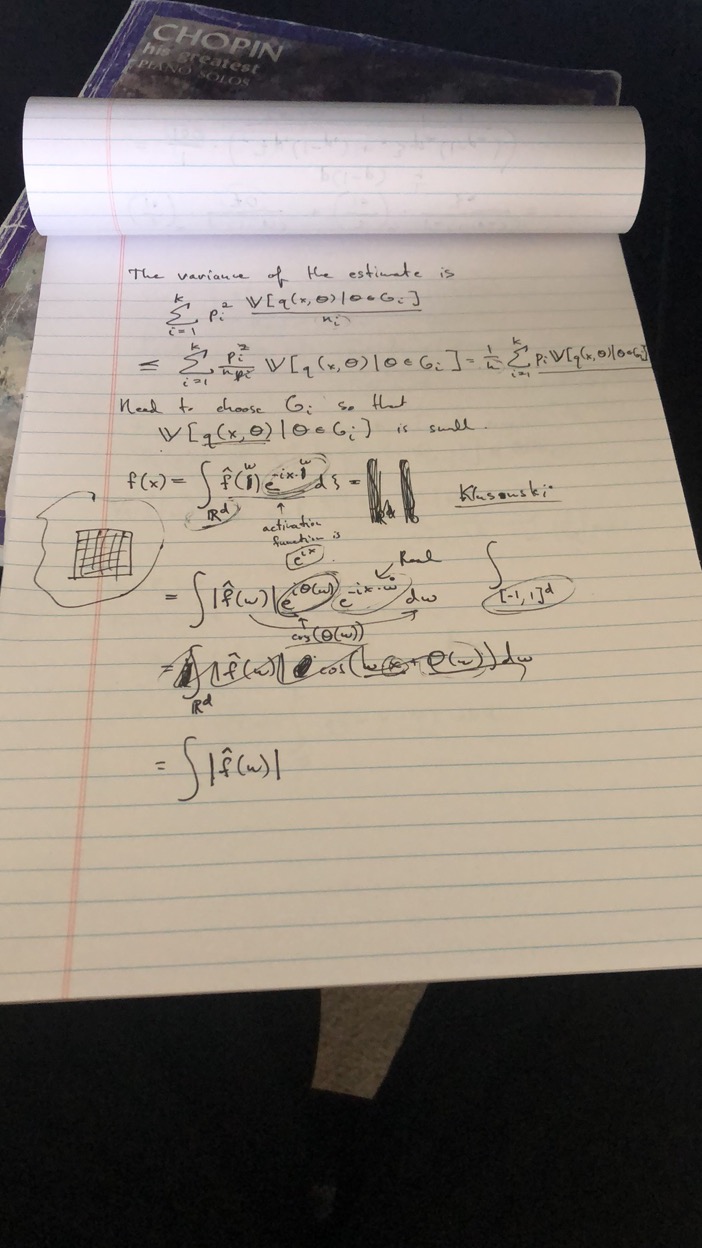 CHOPIN
his greatest
PIANO SOLOS
The variance of the estimate is
∑_{i=1}^{k} p_i² 𝕍[q(x,θ)|θ∈G_i] / n_i
≤ ∑_{i=1}^{k} p_i²/(n p_i) 𝕍[q(x,θ)|θ∈G_i] = 1/n ∑_{i=1}^{k} p_i 𝕍[q(x,θ)|θ∈G_i]
Need to choose G_i so that
𝕍[q(x,θ)|θ∈G_i] is small.
f(x) = ∫_{ℝ^d} f̂(ω) e^{-ix·ω} dξ =
Klusowski
activation
function is
e^{ix}
= ∫ |f̂(ω)| e^{iθ(ω)} e^{-ix·ω} dω
Real
∫_{[-1,1]^d}
cos(θ(ω))
= ∫_{ℝ^d} |f̂(ω)| cos(ω x + θ(ω)) dω
= ∫ |f̂(ω)|